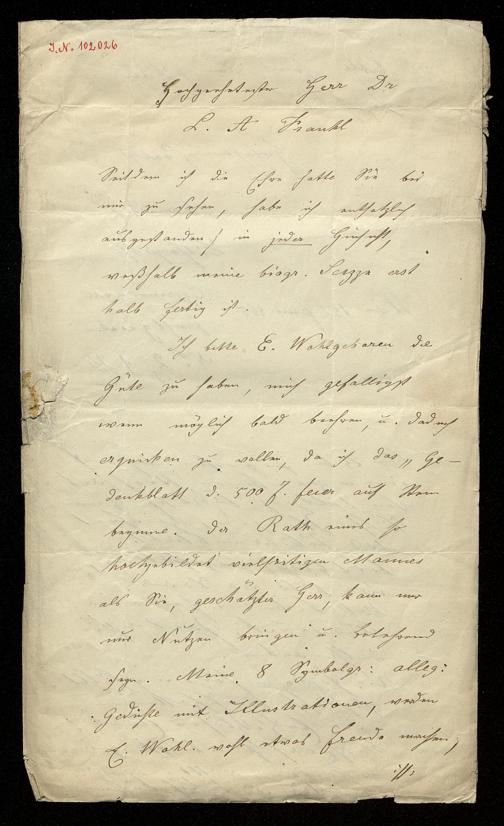 I.N. 102026
Hochgeehrtester Herr Dr
L. A Frankl
Seitdem ich die Ehre hatte Sie bei
mir zu sehen, habe ich entsetzlich
ausgestanden / in jeder Hinsicht,
weßhalb meine biogr. Scizze erst
halb fertig ist.
Ich bitte E. Wohlgeboren die
Güte zu haben, mich gefälligst
wenn möglich bald beehren, u. dadurch
erquicken zu wollen, da ich das „Ge-
denkblatt d. 500 J. feier auf Stein
beginne. Der Rath eines so
hochgebildet vielseitigen Mannes
als Sie, geschätzter Herr, kann mir
nur Nutzen bringen u. belehrend
seyn. Meine 8 Symbolgr: alleg:
Gedichte mit Illustrationen, werden
E. Wohl. wohl etwas Freude machen,